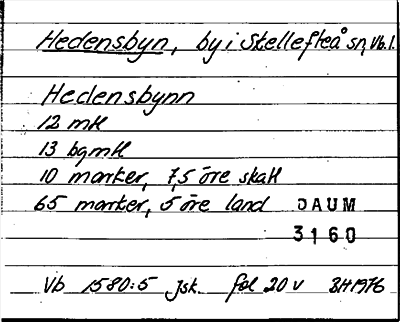 Hedensbyn, by i Skellefteå sn, Vb. l.
Hedensbynn
12 mtl
13 bgmtl
10 marker, 7,5 öre skatt
65 marker, 5 öre land DAUM
3160
Vb 1580:5 Jsk fol 20 v BH 1976